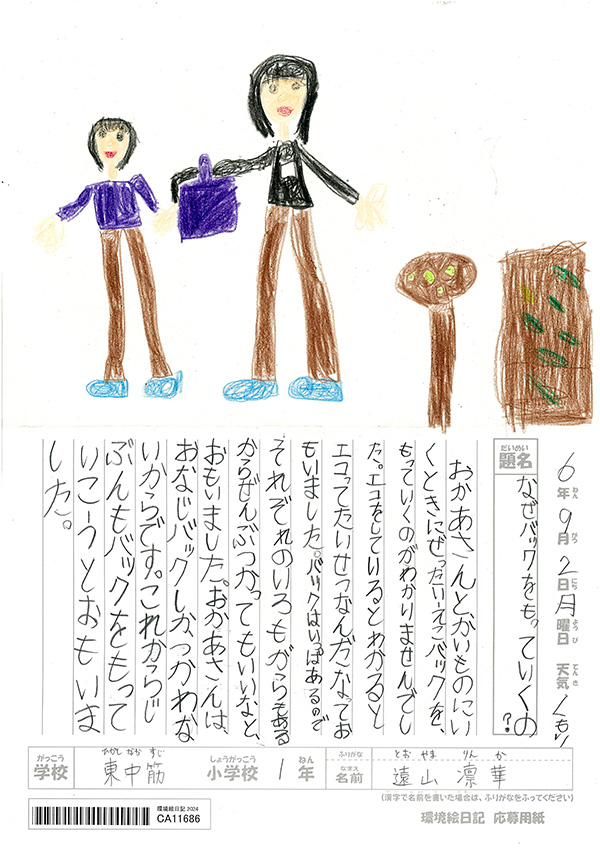 6年ねん9月がつ2日にち月曜日ようび 天気てんき くもり
だいめい
題名 なぜバックをもっていくの?
おかあさんとかいものにい
くときにぜったいーえこバックを、
もっていくのがわかりませんでし
た。エコをしているとわかると
エコってたいせつなんだなってお
もいました。バックはいっぱあるので
それぞれのいろもがらもある
からぜんぶつかってもいいなと、
おもいました。おかあさんは、
おなじバックしかつかわな
いからです。これからじ
ぶんもバックをもって
いこーうとおもいま
した。
がっこう ひがしなかすじ しょうがっこう ねん ふりがな とおやま りんか
学校 東中筋 小学校 1年 なまえ 名前 遠山 凛華
(漢字で名前を書いた場合は、ふりがなをふってください)
環境絵日記 応募用紙
環境絵日記 2024
CA11686